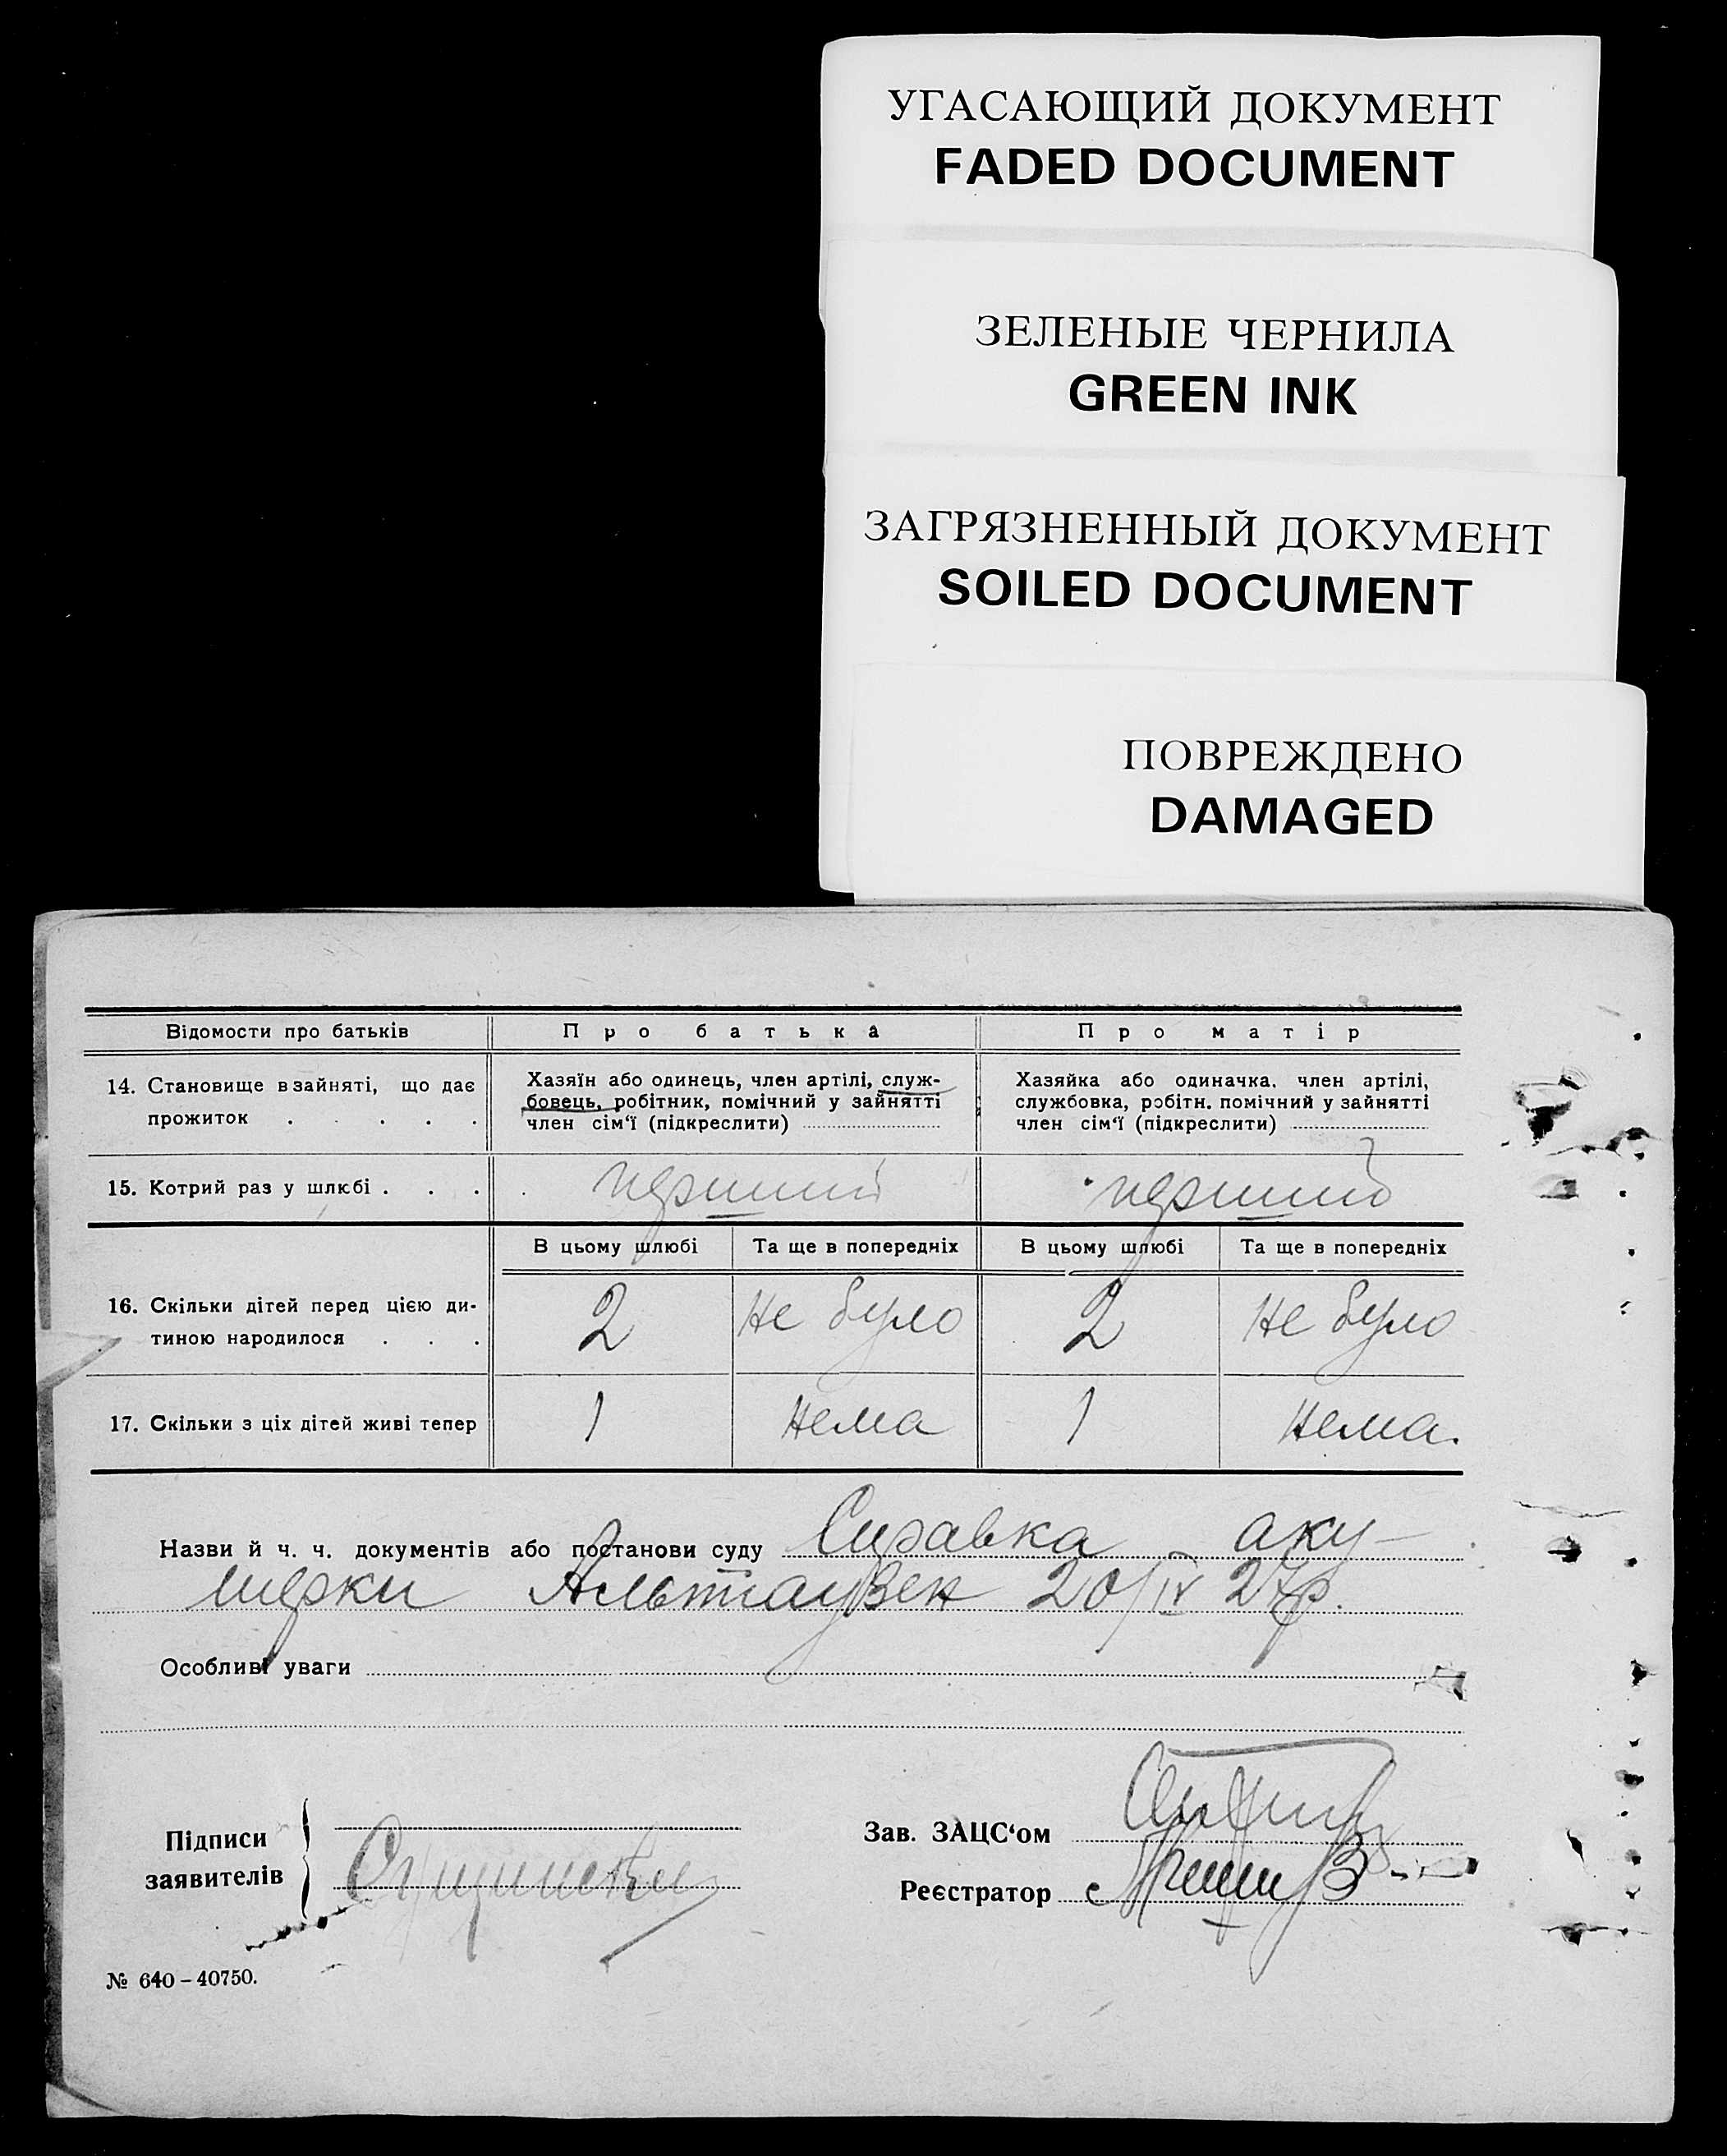 УГАСАЮЩИЙ ДОКУМЕНТ
FADED DOCUMENT
ЗЕЛЕНЫЕ ЧЕРНИЛА
GREEN INK
ЗАГРЯЗНЕННЫЙ ДОКУМЕНТ
SOILED DOCUMENT
ПОВРЕЖДЕНО
DAMAGED
Відомости про батьків Про батька Про матір
14. Становище в зайняті, що дає
прожиток . . . . .
Хазяїн або одинець, член артілі, служ-
бовець, робітник, помічний у зайнятті
член сім'ї (підкреслити)
Хазяйка або одиначка. член артілі,
службовка, робітн. помічний у зайнятті
член сім'ї (підкреслити)
15. Котрий раз у шлюбі . . . перший перший
В цьому шлюбі Та ще в попередніх В цьому шлюбі Та ще в попередніх
16. Скільки дітей перед цією ди-
тиною народилося . . . 2 не було 2 не було
17. Скільки з ціх дітей живі тепер 1 нема 1 нема.
Назви й ч. ч. документів або постанови суду Справка аку-
шерки Альтаузен 20/IV 27р.
Особливі уваги
Підписи
заявителів
Зав. ЗАЦС'ом
Реєстратор
№ 640-40750.